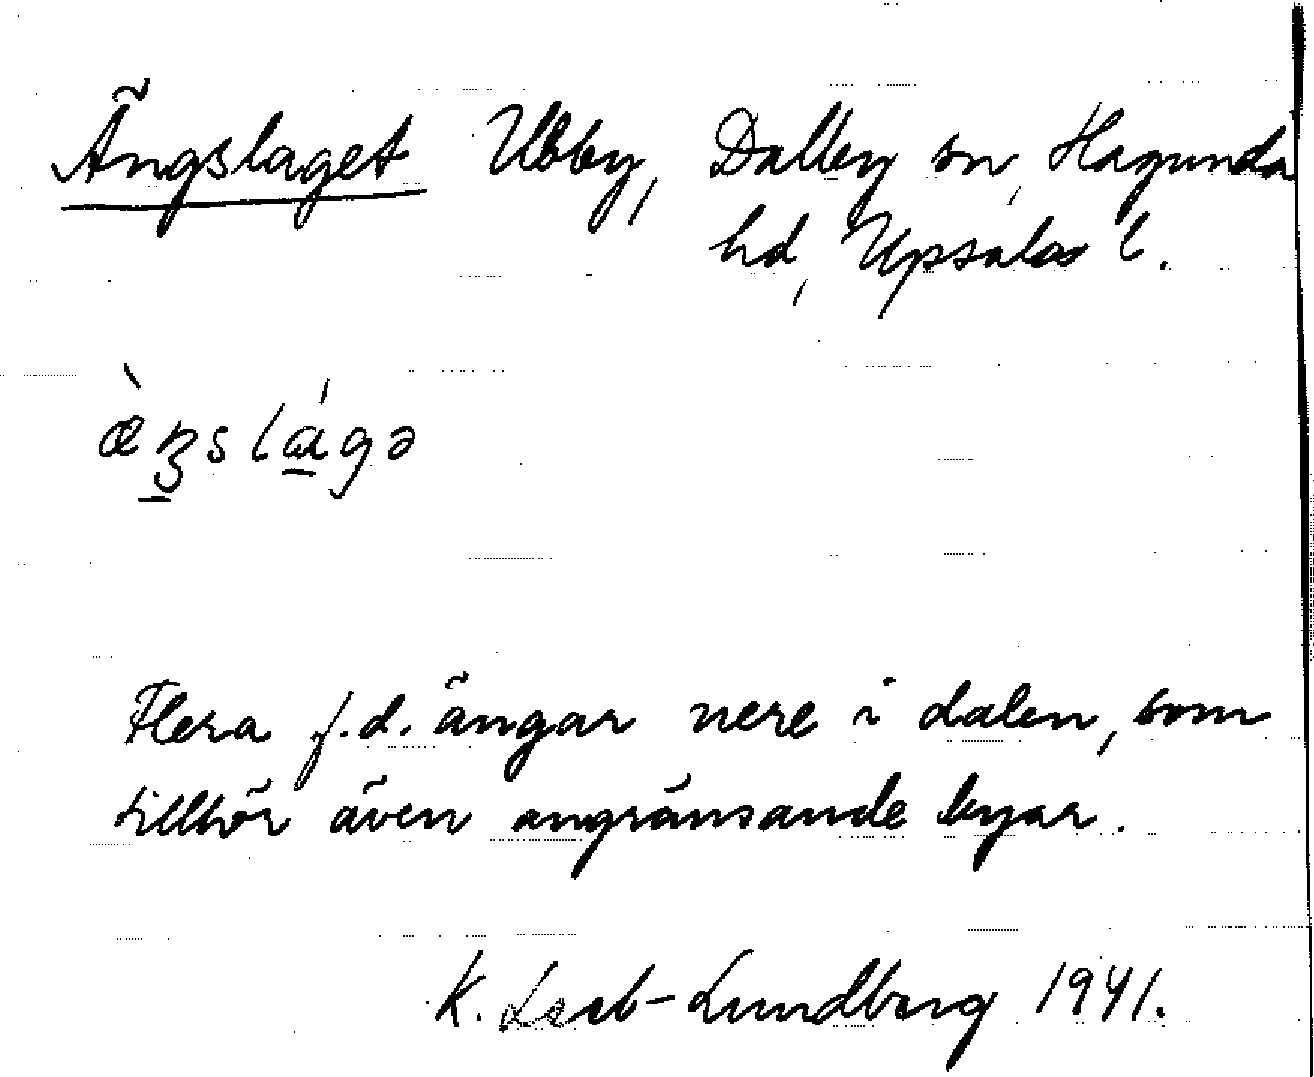 Ängslaget Ubby, Dalby sn, Hagunda
hd, Upsalas l.
æ̀ŋslágə
Flera f.d. ängar nere i dalen, som
tillhör även angränsande byar.
K. Leeb-Lundberg 1941.